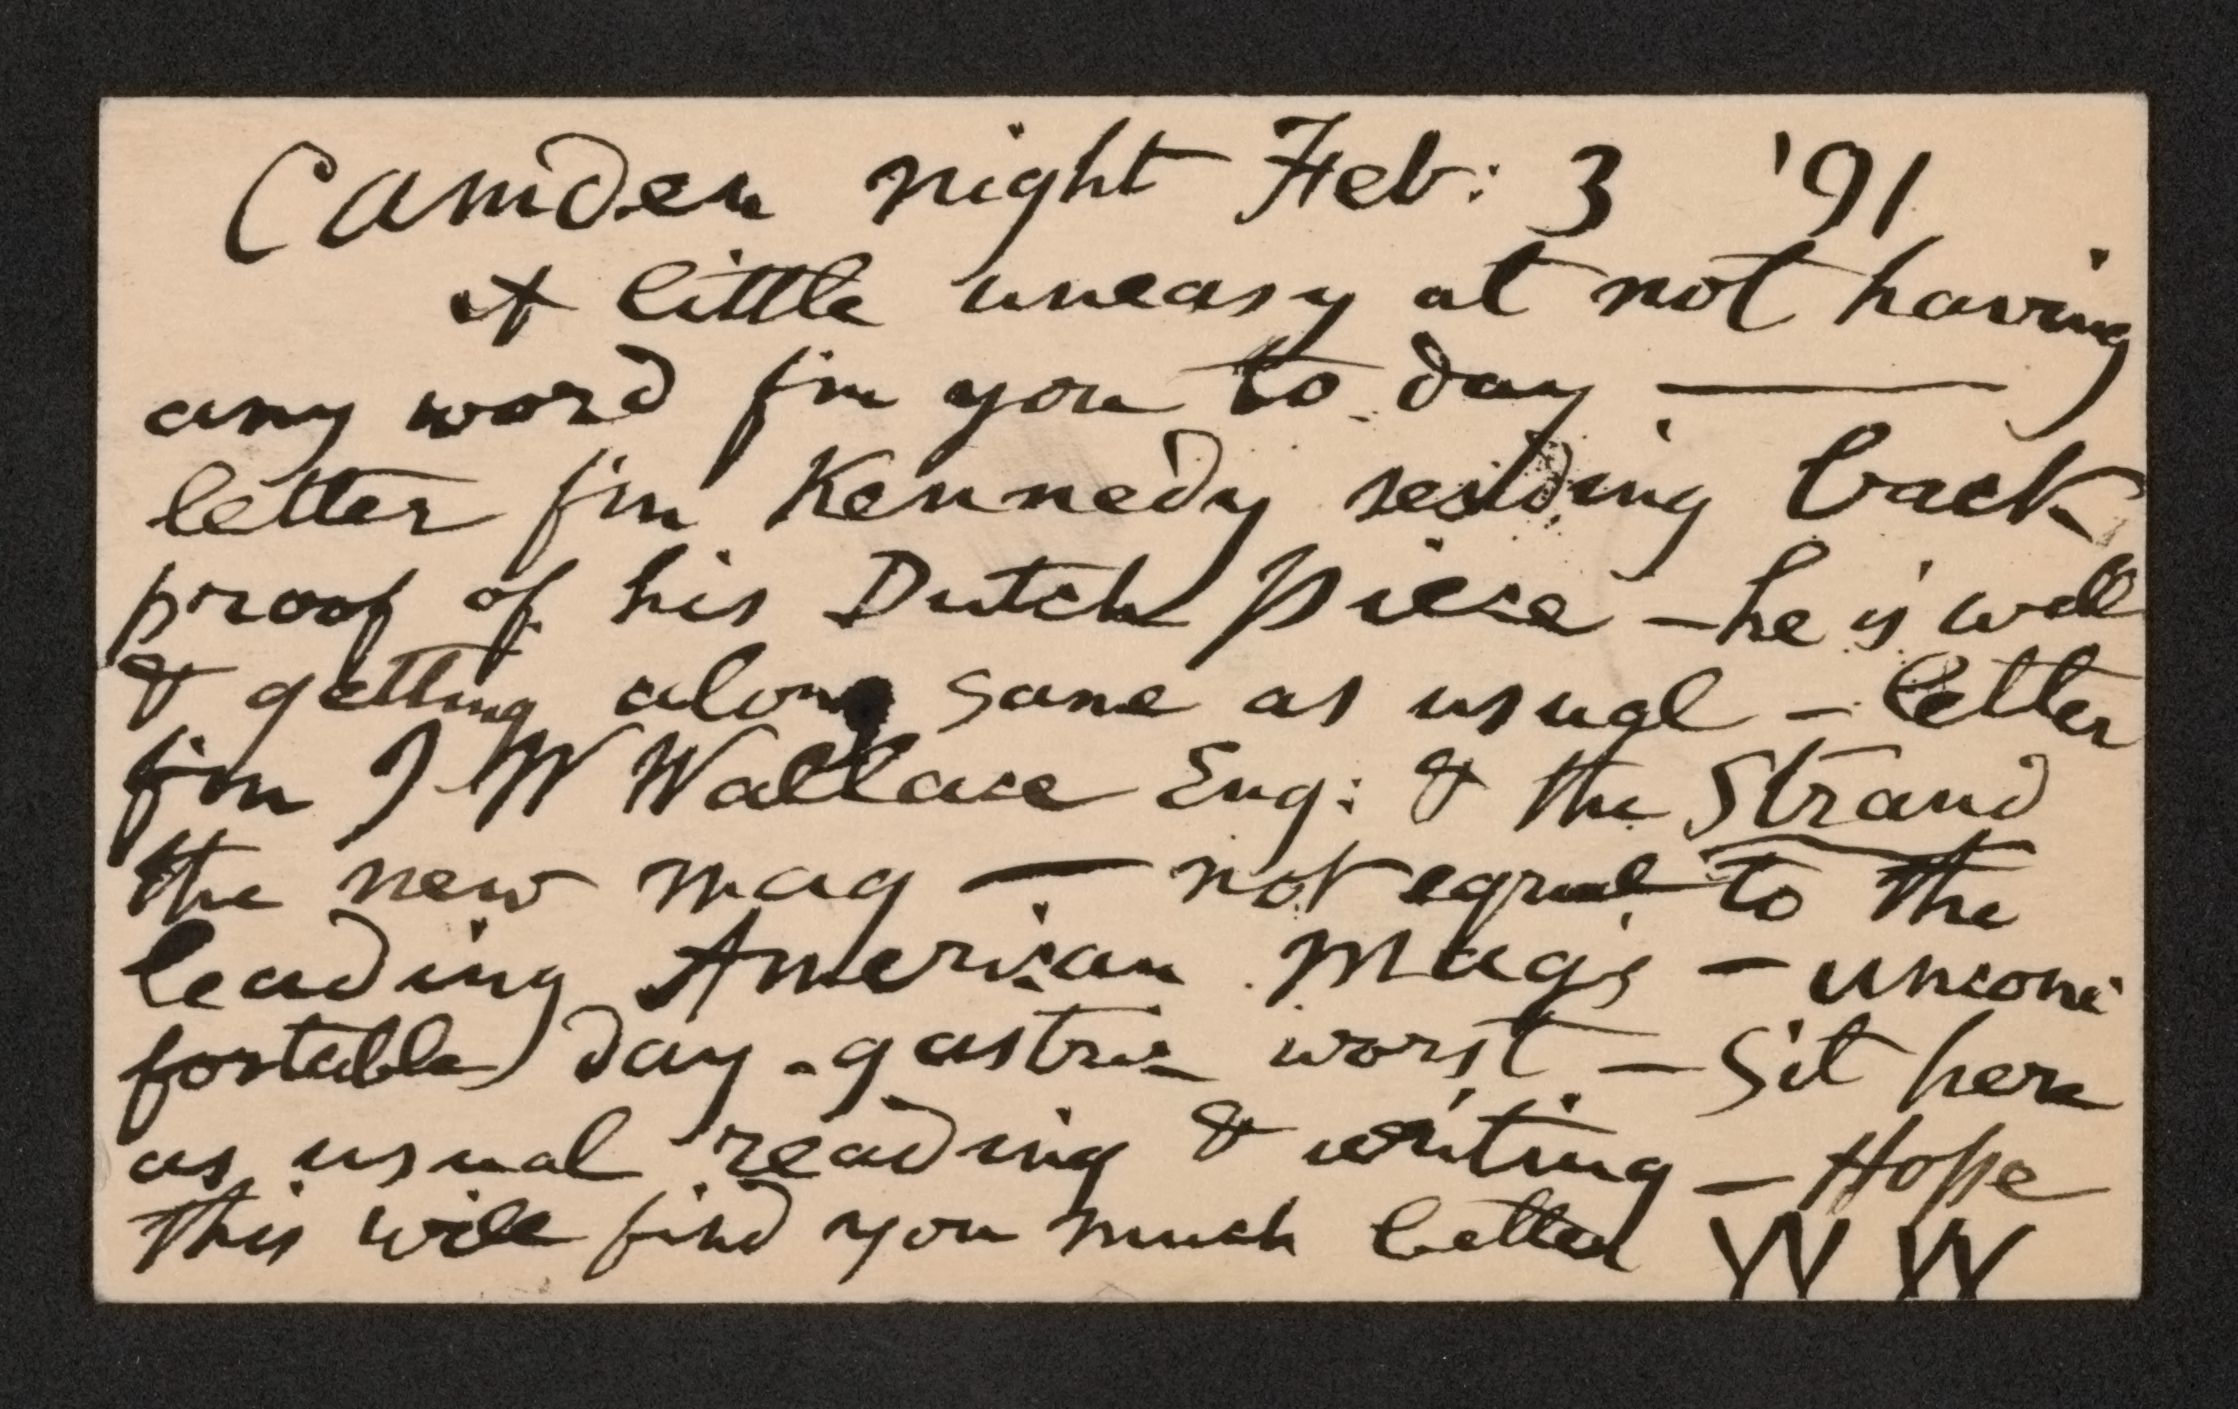 Camden night Feb: 3 '91
A little uneasy at not having
any word f'm you to day —
letter f'm Kennedy sending back
proof of his Dutch piece — he is well
& getting along same as usual — letter
f'm J W Wallace Eng: & the Strand
the new mag — not equal to the
leading American mag's — uncom-
fortable day - gastric worst — Sit here
as usual reading & writing — Hope
this will find you much better W W